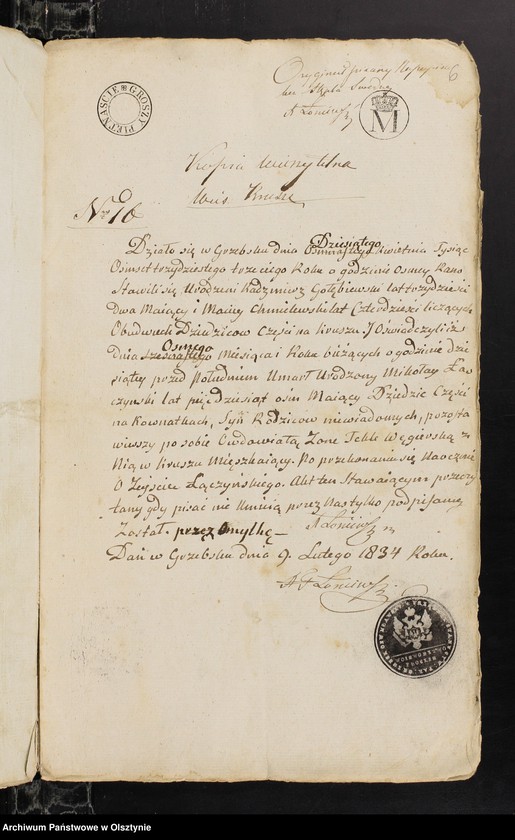 Oryginał pisany
A Łoniewski
6
GROSZY PIĘTNAŚCIE
M
Kopia
Wieś Krusze
Nro 10
Dziesiątego
Działo się w Grzebsku dnia Kwietnia Tysiąc
Osimset trzydziestego trzeciego Roku o godzinie Osmey Rano
Stawili się Urodzeni Kazimierz Gołębiewski lat trzydzieści
Dwa Maiący i Maciey Chmielewski lat Czterdzieści liczących
Obudwuch Dziedziców Części na Kruszu. J Oświadczyli iż
Osmego
Dnia Miesiąca i Roku biżących o godzinie dzie
siątey przed Południem Umarł Urodzony Mikołay Łą
czynski lat pięcdziesiąt osm Maiący Dziedzic Części
na Kownatkach, Syn Rodziców niewiadomych, pozosta
wiwszy po sobie Owdowiałą Zonę Teklę Węgierską z
Nią w Kruszu Mięszkaiący. Po przekonaniu się Naocznie
O Zeyściu Łączyńskiego. Akt ten Stawaiącym przeczy
tany gdy pisać nie Umieią przez Nas tylko podpisany
Został. przez Omyłkę
A Łoniewski
Dań w Grzebsku dnia 9. Lutego 1834 Roku.
A Łoniewski
Archiwum Państwowe w Olsztynie